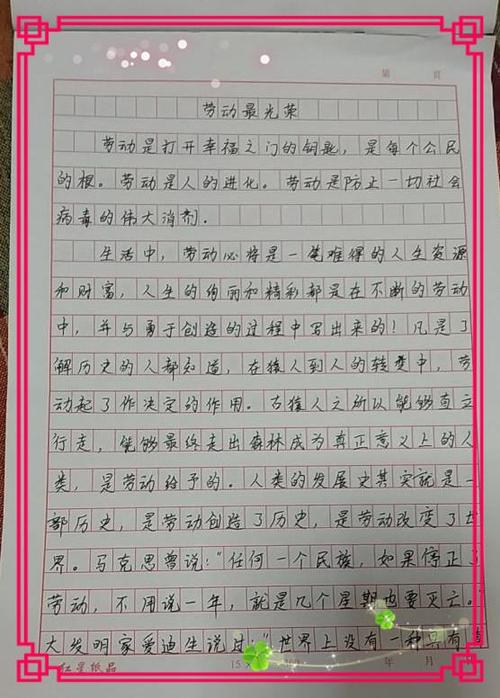 第 页
劳动最光荣
劳动是打开幸福之门的钥匙，是每个公民
的根。劳动是人的进化。劳动是防止一切社会
病毒的伟大消剂．
生活中，劳动必将是一笔难得的人生资源
和财富，人生的绚丽和精彩都是在不断的劳动
中，并与勇于创造的过程中写出来的！凡是了
解历史的人都知道，在猿人到人的转变中，劳
动起了作决定的作用。古猿人之所以能够直立
行走，能够最终走出森林成为真正意义上的人
类，是劳动给予的．人类的发展史其实就是一
部历史，是劳动创造了历史，是劳动改变了世
界。马克思曾说："任何一个民族，如果停止了
劳动，不用说一年，就是几个星期也要灭亡。
大发明家爱迪生说过："世界上没有一种具有
红星纸品 15 年 月